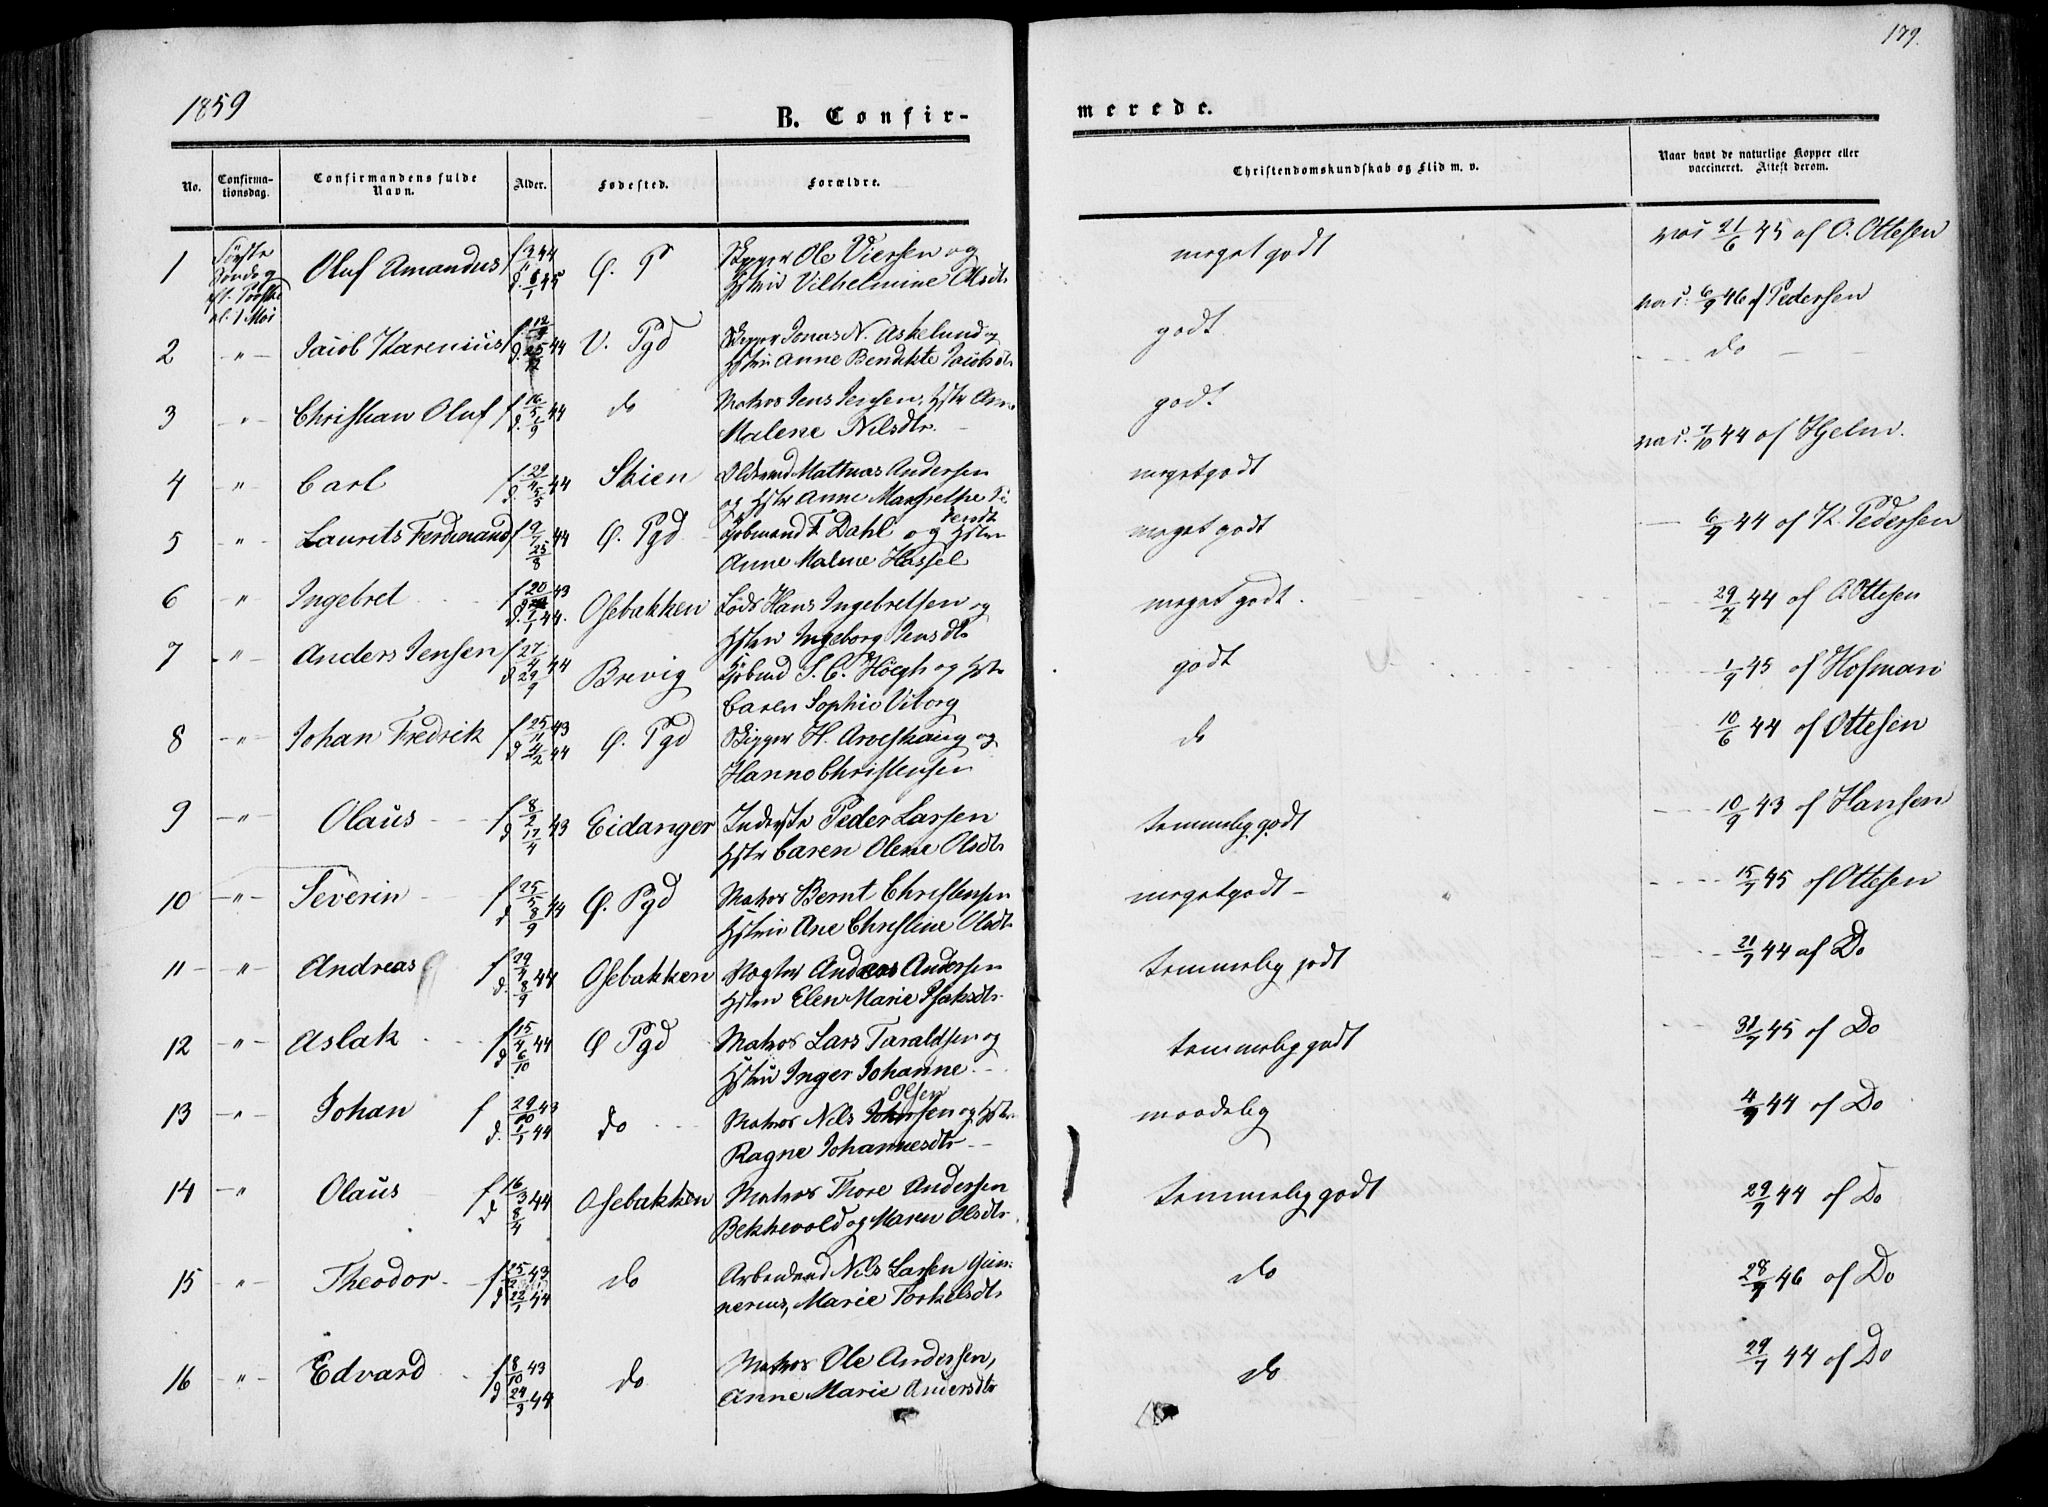 179.
1859
B. Confir-
merede.
No.
Confirma-
tionsdag.
Confirmandens fulde
Navn.
Alder.
Fødested.
Forældre.
Christendomskundskab og Flid m. v.
Naar havt de naturlige Kopper eller
vaccineret. Attest derom.
1 Oluf Amandus Ø. P Skipper Ole Viersen og
Hstru Vilhelmine Olsdtr
meget godt
vac 21/6 45 af O. Ottesen
1 Mai
2 -"- Jacob Karenius V. Pgd Skipper Jonas N. Askelund og
Hstru Anne Bendikte Jacobsdtr
godt
vac. 6/9 46 af Pedersen
3 -"- Christian Oluf f 16/5 44 do Matros Jens Jensen, Hstr Ane
d. 1/9 Malene Nilsdtr. -
godt
do
4 -"- Carl 44 Skien Mathias Andersen
og Hstr Anne Margrethe
meget godt
vac. 7/10 44 af Hjelm.
5 -"- Laurits Ferdinand f 9/7 44 Ø. Pgd Kjøbmand F Dahl og Hstru
25/8 Anne Malene Hassel
meget godt
6/9 44 af K. Pedersen
6 " Ingebret 43 Osebakken Lods Hans Ingebretsen og
d. 1/1 44. Hstru Ingeborg Jensdtr
meget godt.
29/7 44 af O Ottesen
7 -"- Anders Jensen f 27/4 44 Brevig Kjøbmd S. C. Höegh og Hstr
d 29/9 Caren Sophie Viborg
godt
1/9 45 af Hofman
8 -"- Johan Fredrik f 25/11 43 Ø. Pgd Skipper H. Arveskaug og
d 4/2 44 Hanne Christensen
do
10/6 44 af Ottesen
9 -"- Olaus f 8/2 43 Eidanger Inderste Peder Larsen
d 17/4 Hstr Caren Olene Olsdtr
temmelig godt
10/9 43 af Hansen
10 -"- Severin f 25/5 44 Ø. Pgd Matros Bernt Christensen
d. 8/9 Hstru Ane Christine Olsdtr
meget godt -
15/7 45 af Ottesen
11 - -"- Andreas 44 Osebakken Vægter Andreas Andersen
d. 8/9 Hstru Elen Marie Isaksdtr
temmelig godt
21/7 44 af Do
12 -"- Aslak f 15/4 44 Ø Pgd Matros Lars Taraldsen og
d 6/10 Hstru Inger Johanne. -
temmelig godt
31/7 45 af Do
Olsen
13 -"- Johan f 29/10 43 do Matros Nils Johnsen og Hstr
d. 1/1 44 Ragne Johannesdtr -
maadelig
4/9 44 af Do
14 -"- Olaus f 16/3 44 Osebakken Matros Thore Andersen
d 8/4 Bekkevold og Maren Olsdtr
temmelig godt
29/7 44 af Do
15 -"- Theodor. 43 do Arbeidsmd Nils Larsen Gun-
d 22/1 44 nerius, Marie Torkelsdtr
do
28/7 46 af Do
16 -"- Edvard f 8/10 43 do Matros Ole Andersen,
d 24/3 44 Anne Marie Andersdtr
do
29/7 44 af Do